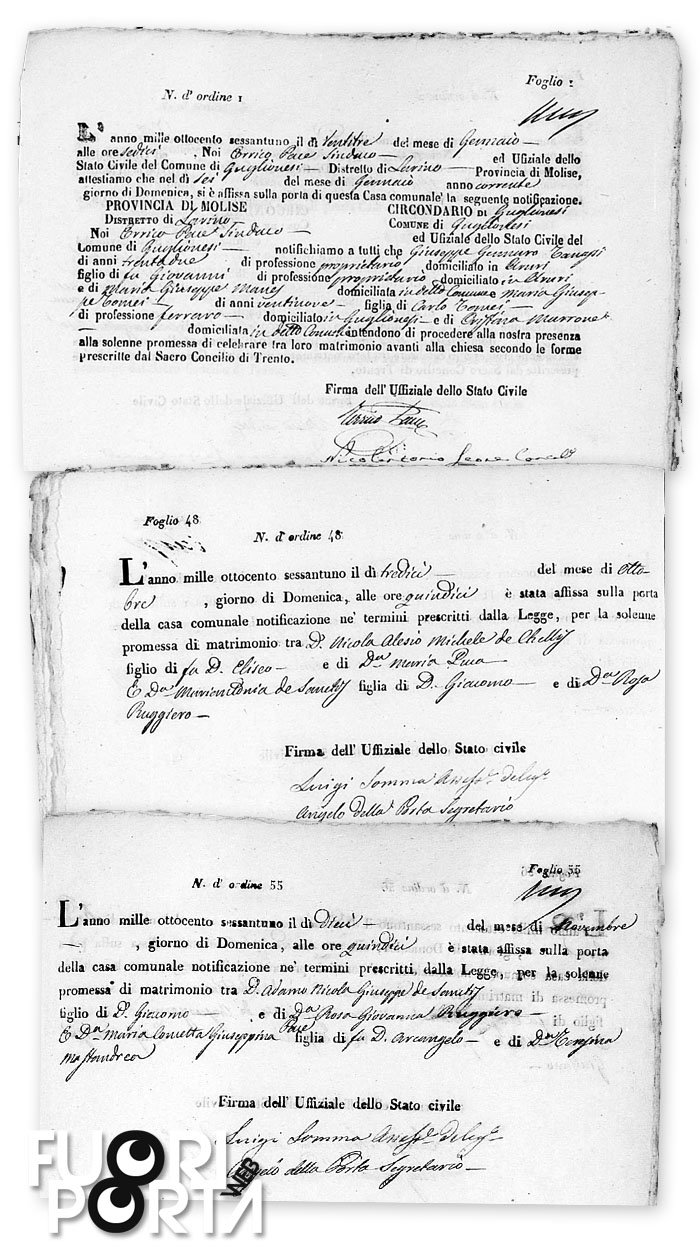 Foglio 1
N. d' ordine 1
L'anno mille ottocento sessantuno il dì ventitre del mese di Gennaio
alle ore sedici . Noi Errico Pace Sindaco — ed Uffiziale dello
Stato Civile del Comune di Guglionesi — Distretto di Larino — Provincia di Molise,
attestiamo che nel dì sei del mese di Gennaio anno corrente
giorno di Domenica, si è affissa sulla porta di questa Casa comunale la seguente notificazione.
PROVINCIA DI MOLISE CIRCONDARIO DI Guglionesi
DISTRETTO DI Larino COMUNE DI Guglionesi
Noi Errico Pace Sindaco — ed Uffiziale dello Stato Civile del
Comune di Guglionesi — notifichiamo a tutti che Giuseppe Gennaro
di anni trentadue di professione proprietario domiciliato in
figlio di fu Giovanni di professione proprietario domiciliato in
e di Maria Giuseppe domiciliata in detto Comune e Maria Giusep-
pe Tomei — di anni ventinove — figlia di Carlo Tomei —
di professione ferraro — domiciliato in Guglionesi — e di Cristina Marrone
— domiciliata in detto Comune intendono di procedere alla nostra presenza
alla solenne promessa di celebrare tra loro matrimonio avanti alla chiesa secondo le forme
prescritte dal Sacro Concilio di Trento.
Firma dell' Uffiziale dello Stato Civile
Errico Pace
Foglio 48
N. d' ordine 48
L'anno mille ottocento sessantuno il dì tredici — del mese di Otto-
bre , giorno di Domenica, alle ore quindici è stata affissa sulla porta
della casa comunale notificazione ne' termini prescritti dalla Legge, per la solenne
promessa di matrimonio tra D. Nicola Alesio Michele de Chellis
figlio di fu D. Eliseo — e di Da Maria Pace —
E Da Mariantonia de Sanctis figlia di D. Giacomo — e di Da Rosa
Ruggiero —
Firma dell' Uffiziale dello Stato civile
Luigi Somma
Angelo della Porta Segretario
Foglio 55
N. d' ordine 55
L'anno mille ottocento sessantuno il dì Dieci — del mese di Novembre
— , giorno di Domenica, alle ore quindici è stata affissa sulla porta
della casa comunale notificazione ne' termini prescritti dalla Legge, per la solenne
promessa di matrimonio tra D. Adamo Nicola Giuseppe de Sanctis
figlio di D. Giacomo — , e di Da Rosa Giovanna Ruggiero —
E Da Maria Concetta Giuseppina Pace figlia di fu D. Arcangelo — e di Da
Mastandrea
Firma dell' Uffiziale dello Stato civile
Luigi Somma
Angelo della Porta Segretario —
FUORI
PORTA
WEB